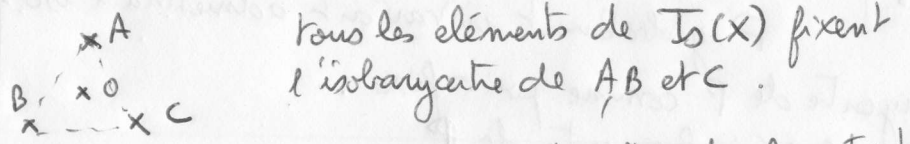 A
B
O
C
tous les éléments de Is(X) fixent
l'isobarycentre de A, B et C.